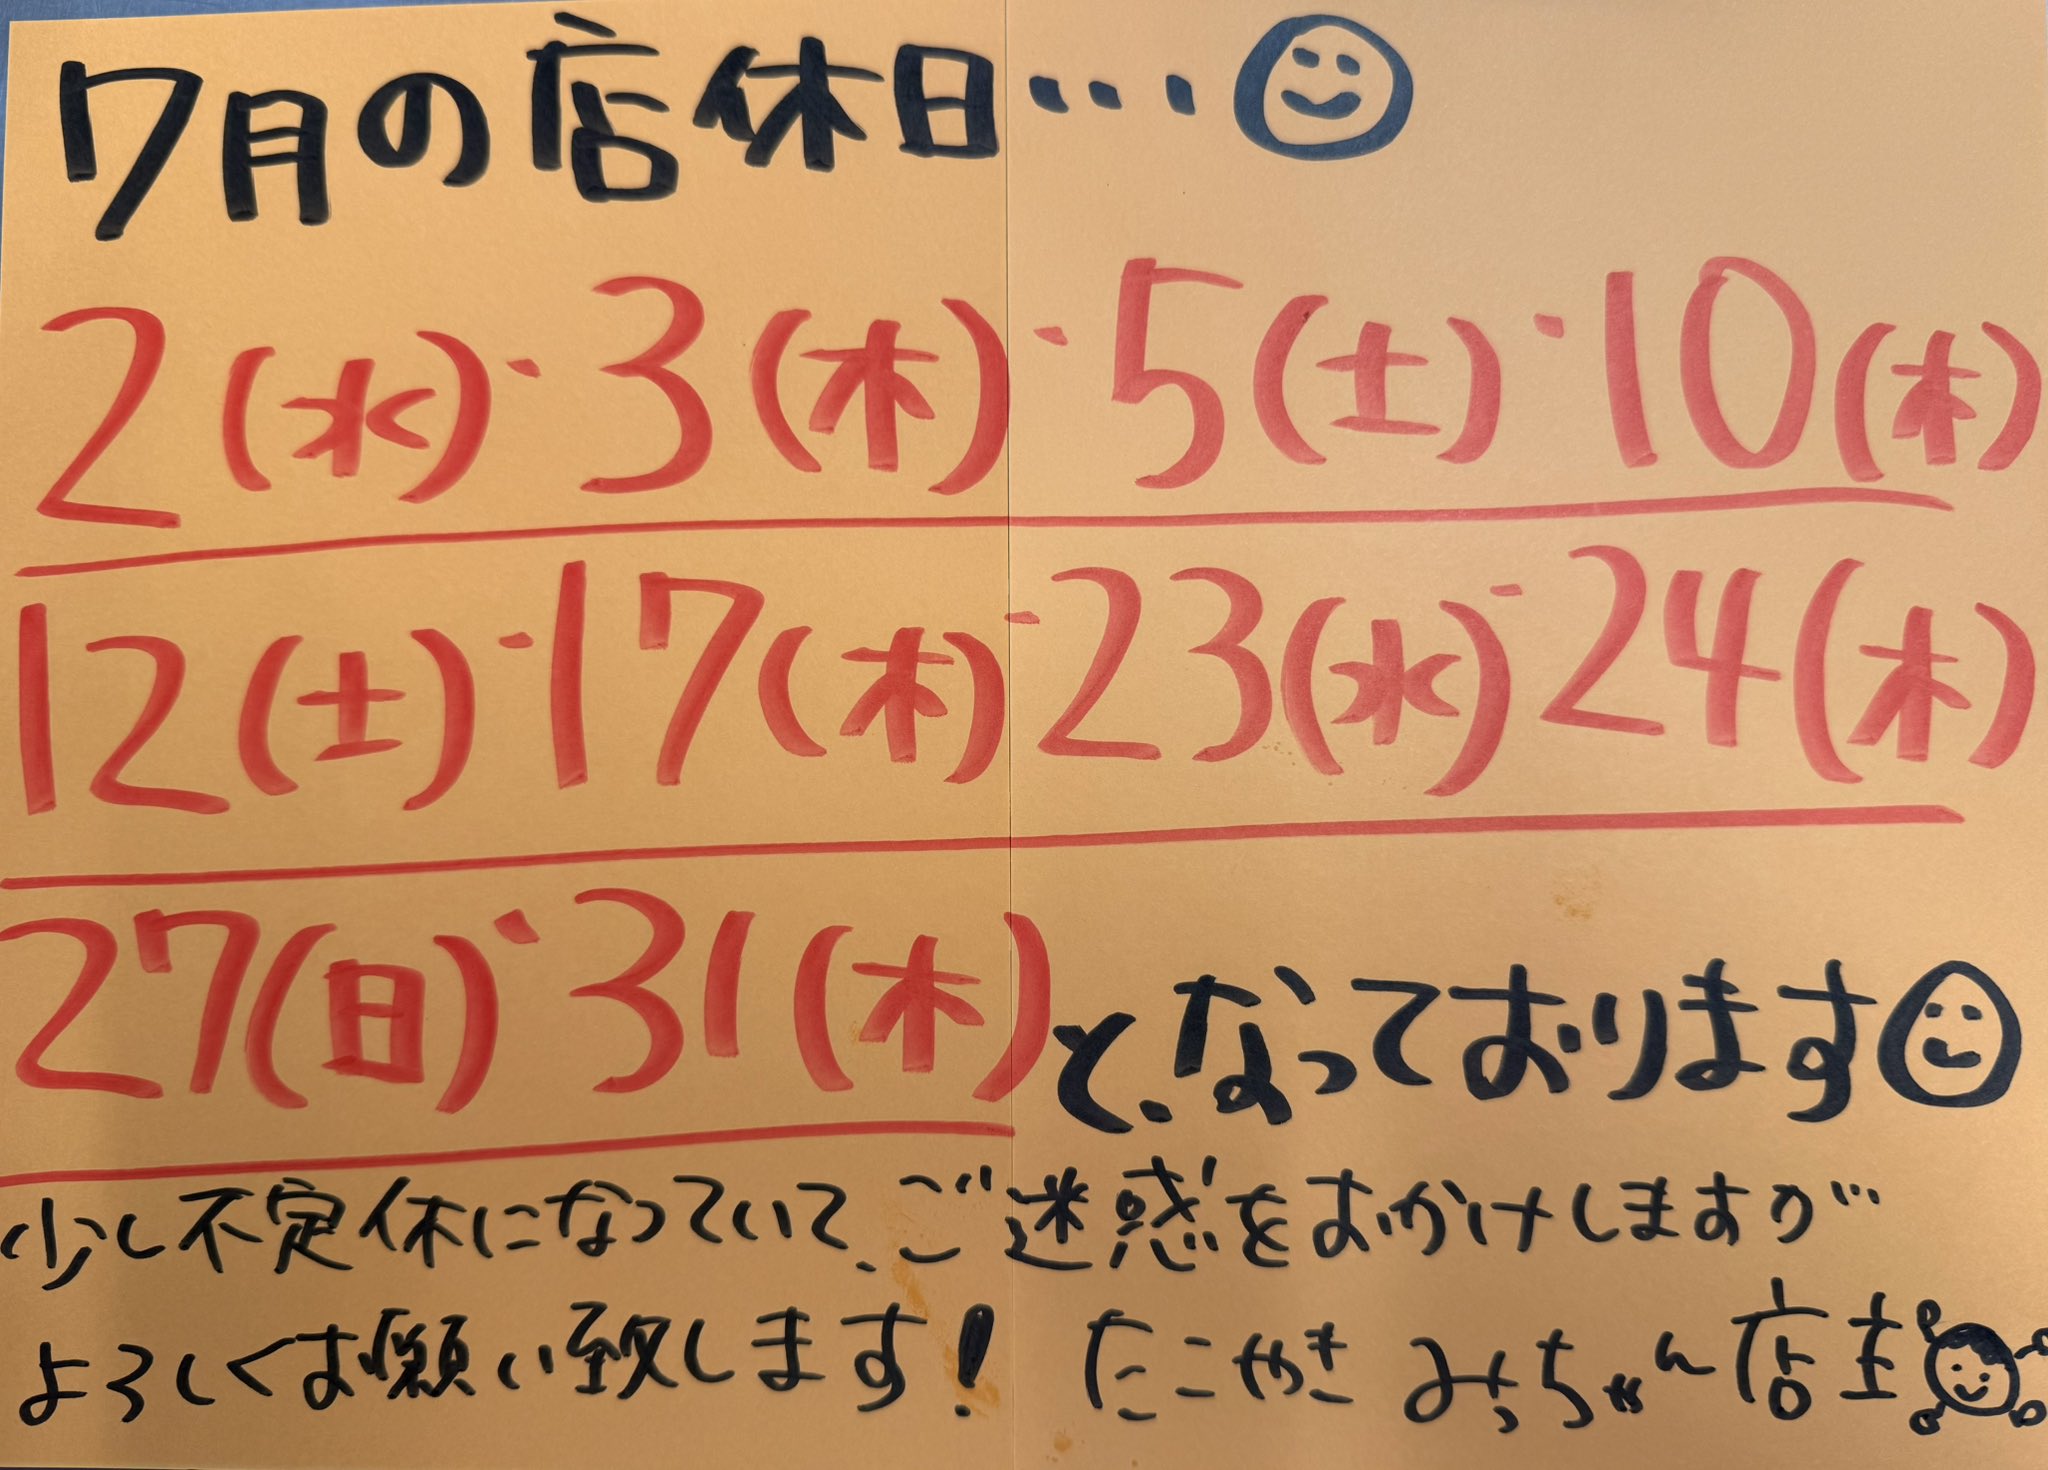 7月の店休日…
2(水)・3(木)・5(土)・10(木)
12(土)・17(木)・23(水)・24(木)
27(日)・31(木)と、なっております
少し不定休になっていて、ご迷惑をおかけしますが…
よろしくお願い致します! たこやき みっちゃん店主